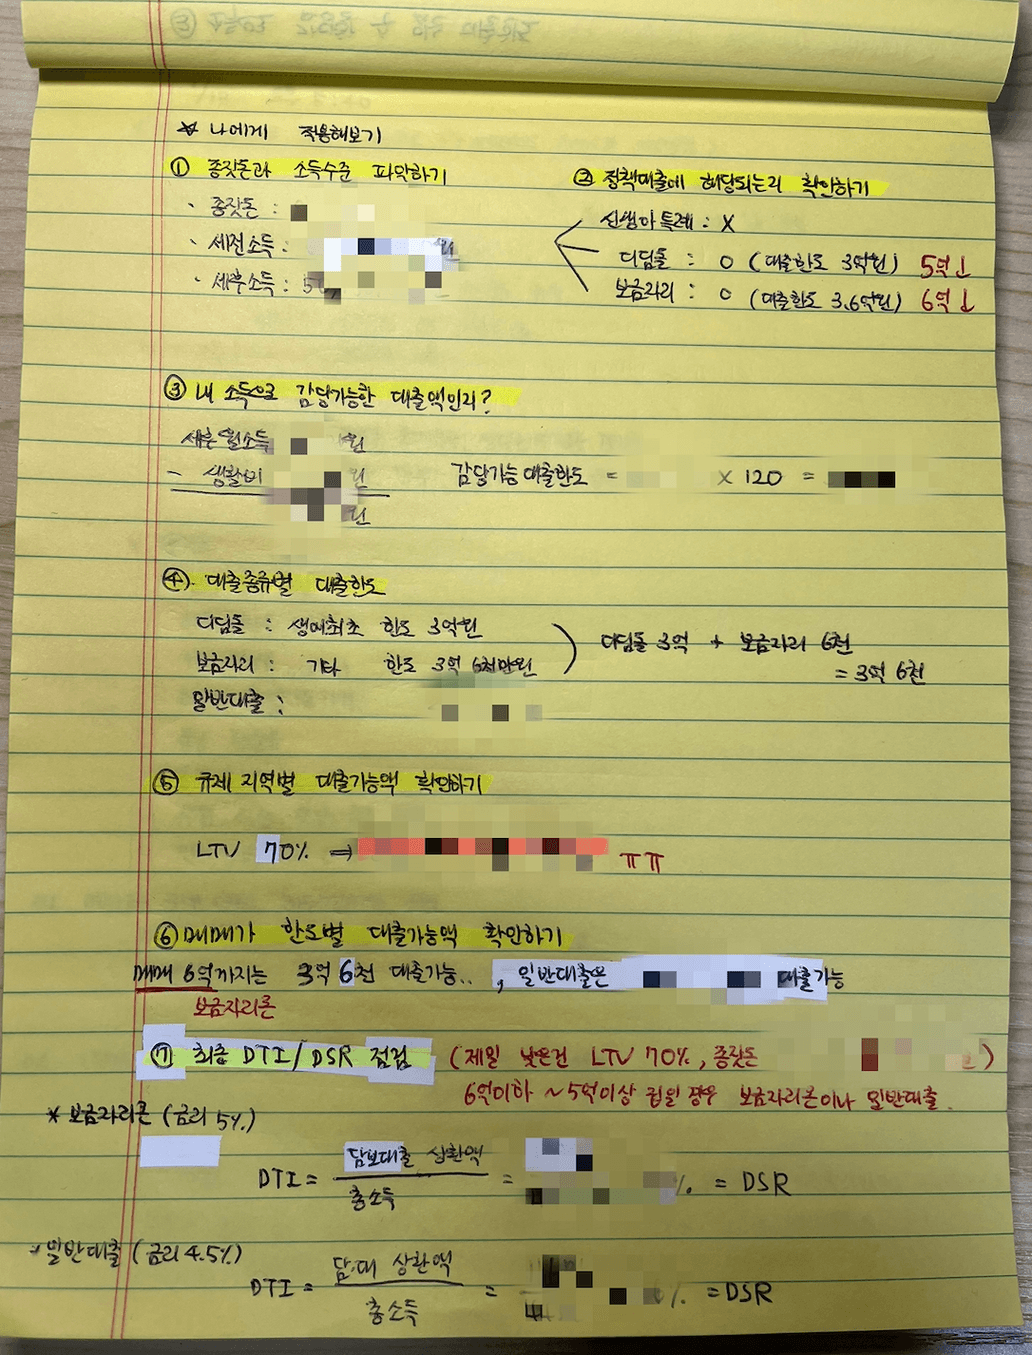 * 나에게 적용해보기
① 종잣돈과 소득수준 파악하기
· 종잣돈 :
· 세전소득 :
· 세후소득 : 5
② 정책대출에 해당되는지 확인하기
신생아 특례 : X
디딤돌 : O (대출한도 3억원) 5억↓
보금자리 : O (대출한도 3.6억원) 6억↓
③ 내 소득으로 감당가능한 대출액인지?
세후 월소득 원
- 생활비 원
원
감당가능 대출한도 = X 120 =
④. 대출종류별 대출한도
디딤돌 : 생애최초 한도 3억원
보금자리 : 기타 한도 3억 6천만원
일반대출 :
디딤돌 3억 + 보금자리 6천
= 3억 6천
⑤ 규제 지역별 대출가능액 확인하기
LTV 70% ⇒ ㅠㅠ
⑥ 매매가 한도별 대출가능액 확인하기
매매 6억까지는 3억 6천 대출가능.. , 일반대출은 대출가능
보금자리론
⑦ 최종 DTI/DSR 점검 (제일 낮은건 LTV 70%, 종잣돈 )
6억이하 ~ 5억이상 집일 경우 보금자리론이나 일반대출.
* 보금자리론 (금리 5%)
DTI = 담보대출 상환액 = % = DSR
총소득
일반대출 (금리 4.5%)
DTI = 담.대 상환액 = % = DSR
총소득